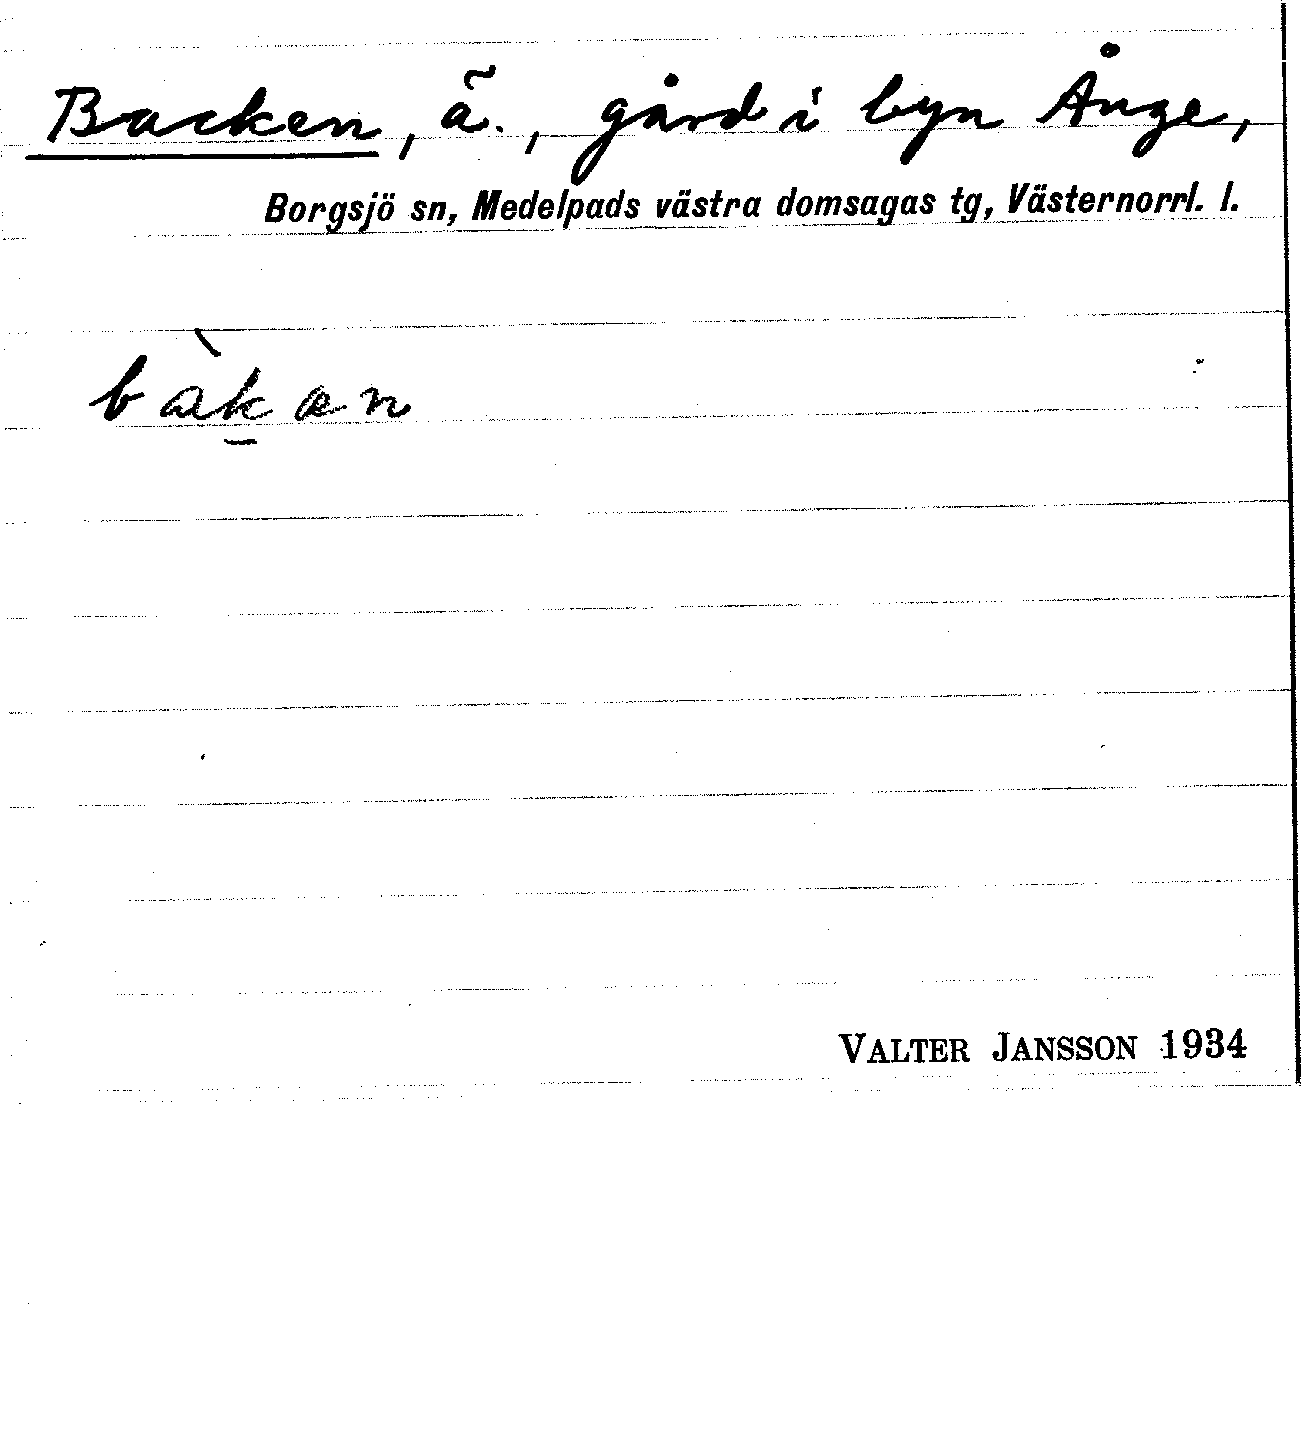 Backen, ä., gård i byn Ånge,
Borgsjö sn, Medelpads västra domsagas tg, Västernorrl. l.
bàk̠æn
VALTER JANSSON 1934